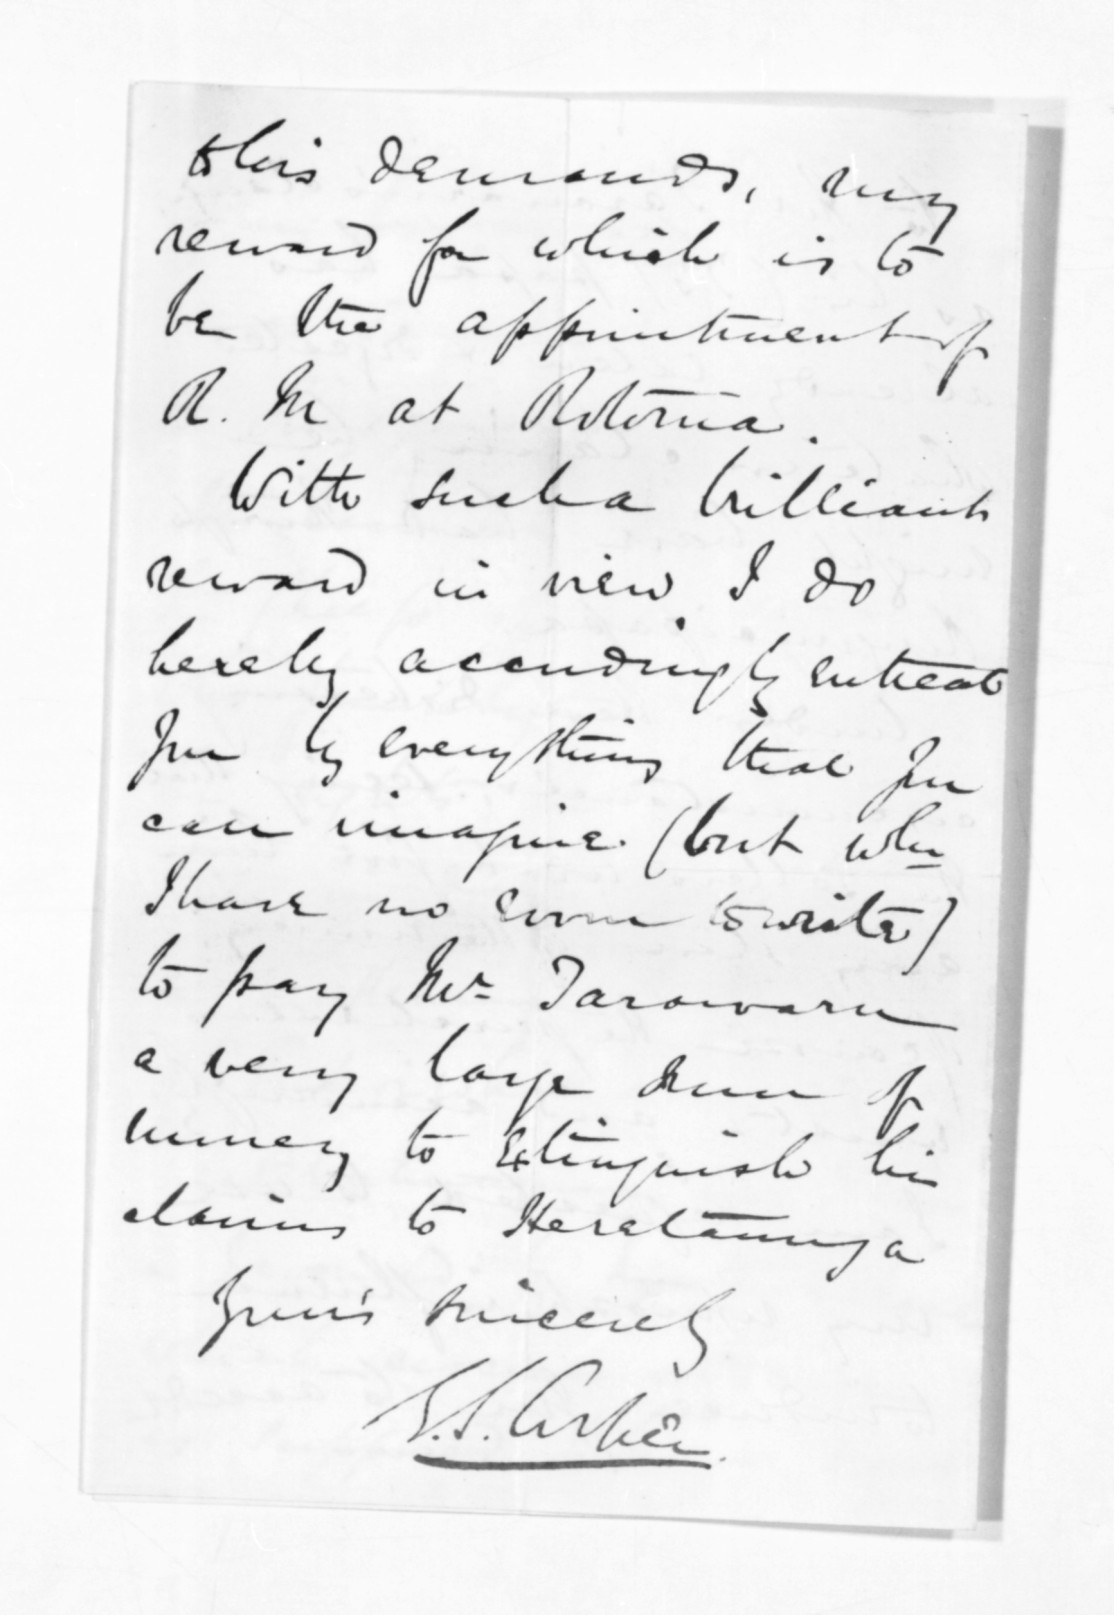 to his demands, my
reward for which is to
be the appointment of
R. M at Rotorua.
With such a brilliant
reward in view I do
hereby accordingly entreat
you by everything that you
can imagine (but whh
I have no room to write)
to pay Mr. Tarawaru
a very large sum of
money to extinguish his
claims to Heretaunga
Yours sincerely